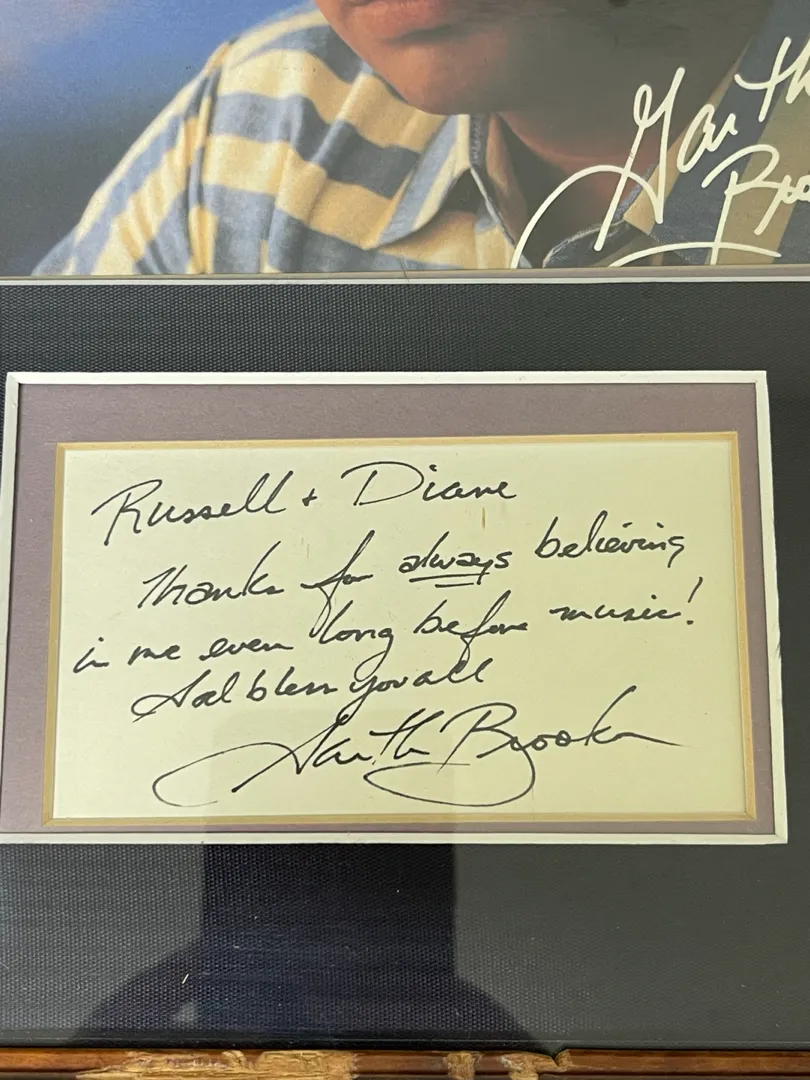 Garth
Broo
Russell + Diane
Thanks for always believing
in me even long before music!
God bless you all
Garth Brooks